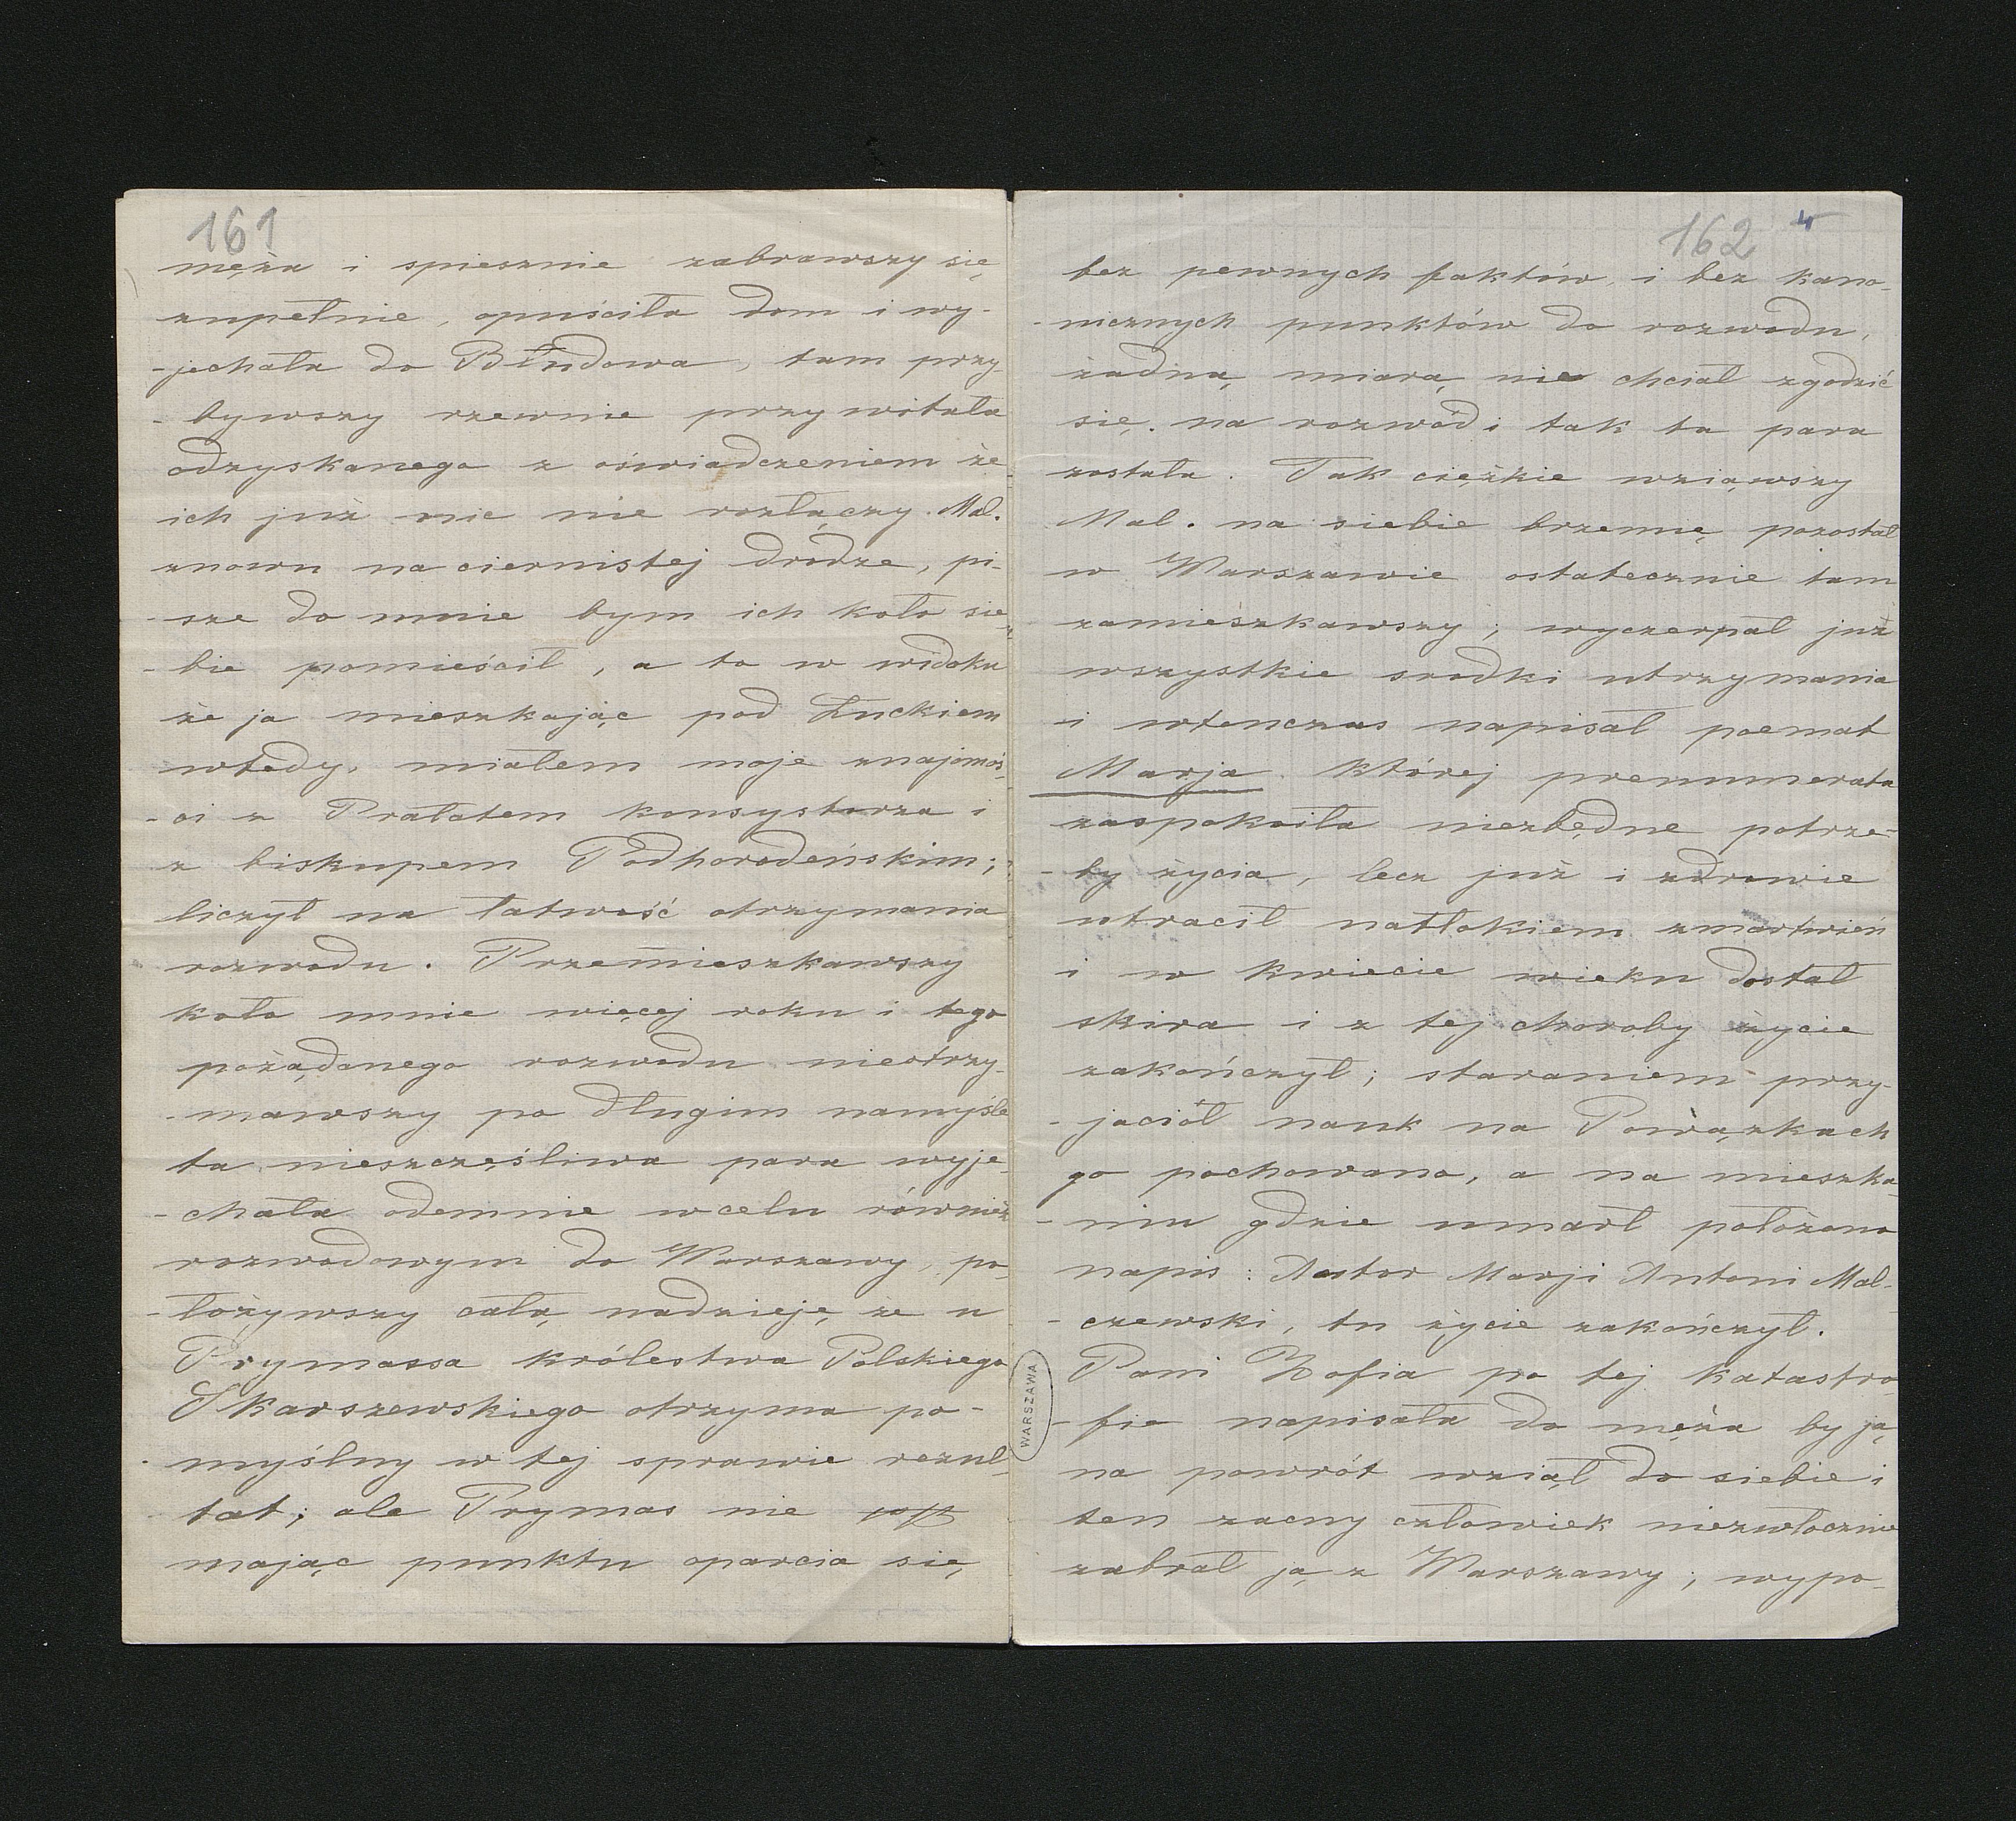 161
męża i spiesznie zabrawszy się
zupełnie, opuściła dom i wy-
-jechała do Błudowa, tam przy-
-bywszy rzewnie przywitała
odzyskanego z oświadczeniem że
ich już nic nie rozłączy. Mal.
znowu na ciernistej drodze, pi-
-sze do mnie bym ich koło sie-
-bie pomieścił, a to w widoku
że ja mieszkając pod Łuckiem
wtedy, miałem moje znajomoś-
-ci z Prałatem konsystorza i
z biskupem Podhorodeńskim;
liczył na łatwość otrzymania
rozwodu. Przemieszkawszy
koło mnie więcej roku i tego
pożądanego rozwodu nieotrzy-
-mawszy po długim namyśle
ta nieszczęśliwa para wyje-
-chała odemnie w celu również
rozwodowym do Warszawy, po-
-łożywszy całą nadzieję, że u
Prymassa królestwa Polskiego
Skarszewskiego otrzyma po-
myślny w tej sprawie rezul-
tat; ale Prymas nie
mając punktu oparcia się,
162 4
bez pewnych faktów, i bez kano-
-nicznych punktów do rozwodu,
żadną miarą nie chciał zgodzić
się. na rozwód i tak ta para
została. Tak ciężkie wziąwszy
Mal. na siebie brzemię pozostał
w Warszawie ostatecznie tam
zamieszkawszy; wyczerpał już
wszystkie srodki utrzymania
i wtenczas napisał poemat
Marja. której prenumerata
zaspokoiła niezbędne potrze-
-by życia, lecz już i zdrowie
utracił natłokiem zmartwień
i w kwiecie wieku dostał
skira i z tej choroby życie
zakończył; staraniem przy-
-jaciół nauk na Powązkach
go pochowano, a na mieszka-
-niu gdzie umarł położono
napis: Autor Marji Antoni Mal-
-czewski, tu życie zakończył.
Pani Zofia po tej katastro-
-fie napisała do męża by ją
na powrót wziął do siebie i
ten zacny człowiek niezwłocznie
zabrał ją z Warszawy; wypo-
WARSZAWA